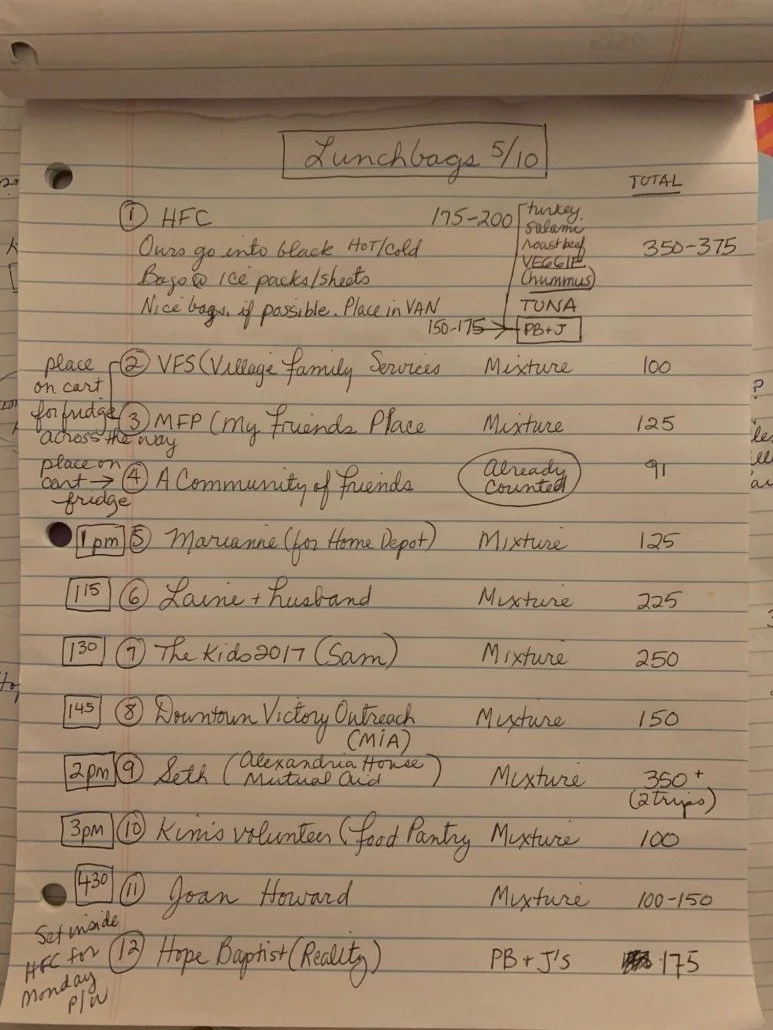 Lunchbags 5/10
TOTAL
① HFC 175-200 turkey,
salami
Ours go into black HOT/Cold roast beef 350-375
VEGGIE
Bags @ ice packs/sheets (hummus)
Nice bags, if possible. Place in VAN TUNA
150-175 → PB+J
place on cart for fridge across the way
② VFS (Village Family Services Mixture 100
③ MFP (My Friends Place Mixture 125
place on cart → fridge
④ A Community of Friends Already Counted 91
1pm ⑤ Marianne (for Home Depot) Mixture 125
115 ⑥ Laine + husband Mixture 225
130 ⑦ The Kids 2017 (Sam) Mixture 250
145 ⑧ Downtown Victory Outreach Mixture 150
(MIA)
2pm ⑨ Seth (Alexandria House Mutual Aid) Mixture 350+
(2 trips)
3pm ⑩ Kim's volunteer (food Pantry Mixture 100
430 ⑪ Joan Howard Mixture 100-150
Set inside HFC for Monday P/U
⑫ Hope Baptist (Reality) PB+J's 175